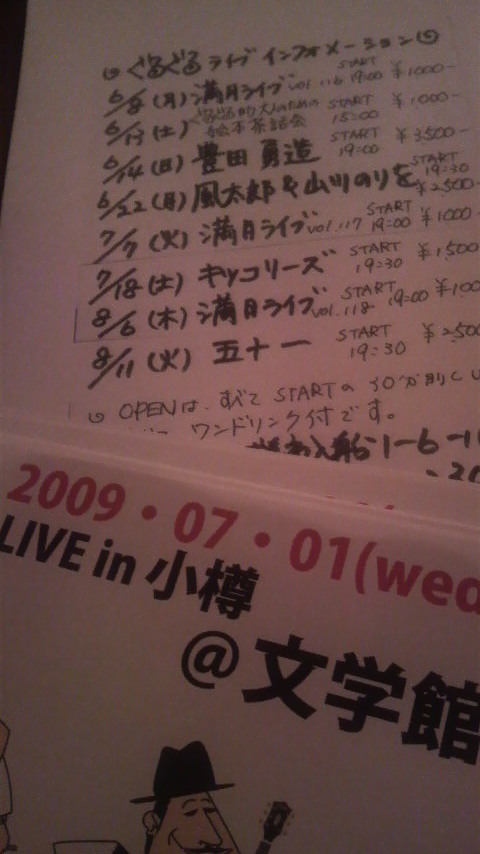 ぐるぐるライブインフォメーション
6/8(月)満月ライブvol.116 START 19:00 ¥1000-
6/13(土)ぐるぐる的大人のための絵本茶話会 START 15:00 ¥1,000-
6/14(日)豊田勇造 START 19:00 ¥3500-
6/22(月)風太郎&山ツのりを START 19:30 ¥2,500-
7/7(火)満月ライブvol.117 START 19:00 ¥1000
7/18(土)キッコリーズ START 19:30 ¥1,500
8/6(木)満月ライブvol.118 START 19:00 ¥100
8/11(火)五十一 START 19:30 ¥2,500
OPENは、すべてSTARTの30分前
ワンドリンク付です。
入船1-6-1
2009・07・01(wed
LIVE in 小樽
@文学館